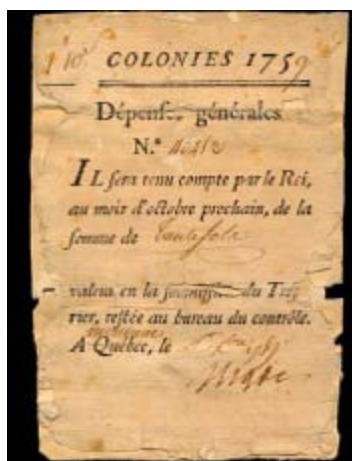 COLONIES 1759
Dépenses générales
N.º
IL sera tenu compte par le Roi,
au mois d'octobre prochain, de la
somme de
valeur en la soumission du Tréso-
rier, restée au bureau du contrôle.
A Québec, le